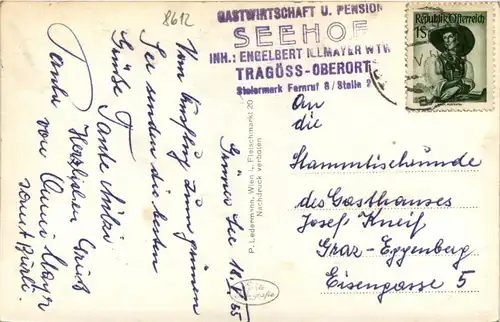 8612
GASTWIRTSCHAFT U. PENSION
SEEHOF
INH.: ENGELBERT ILLMAYER WTR
TRAGÖSS-OBERORT
Steiermark Fernruf 8/Stelle 2
Republik Österreich
1S
Grüner See 18.V.55
Vom Ausflug zum grünen
See senden die besten
Grüße Tante Mitzi
Herzlichen Gruß
Tante von Anni Mayr
samt Burli.
P. Ledermann, Wien I., Fleischmarkt 20
Nachdruck verboten
An
die
Stammtischrunde
des Gasthauses
Josef Kneif
Graz-Eggenberg
Eisengasse 5